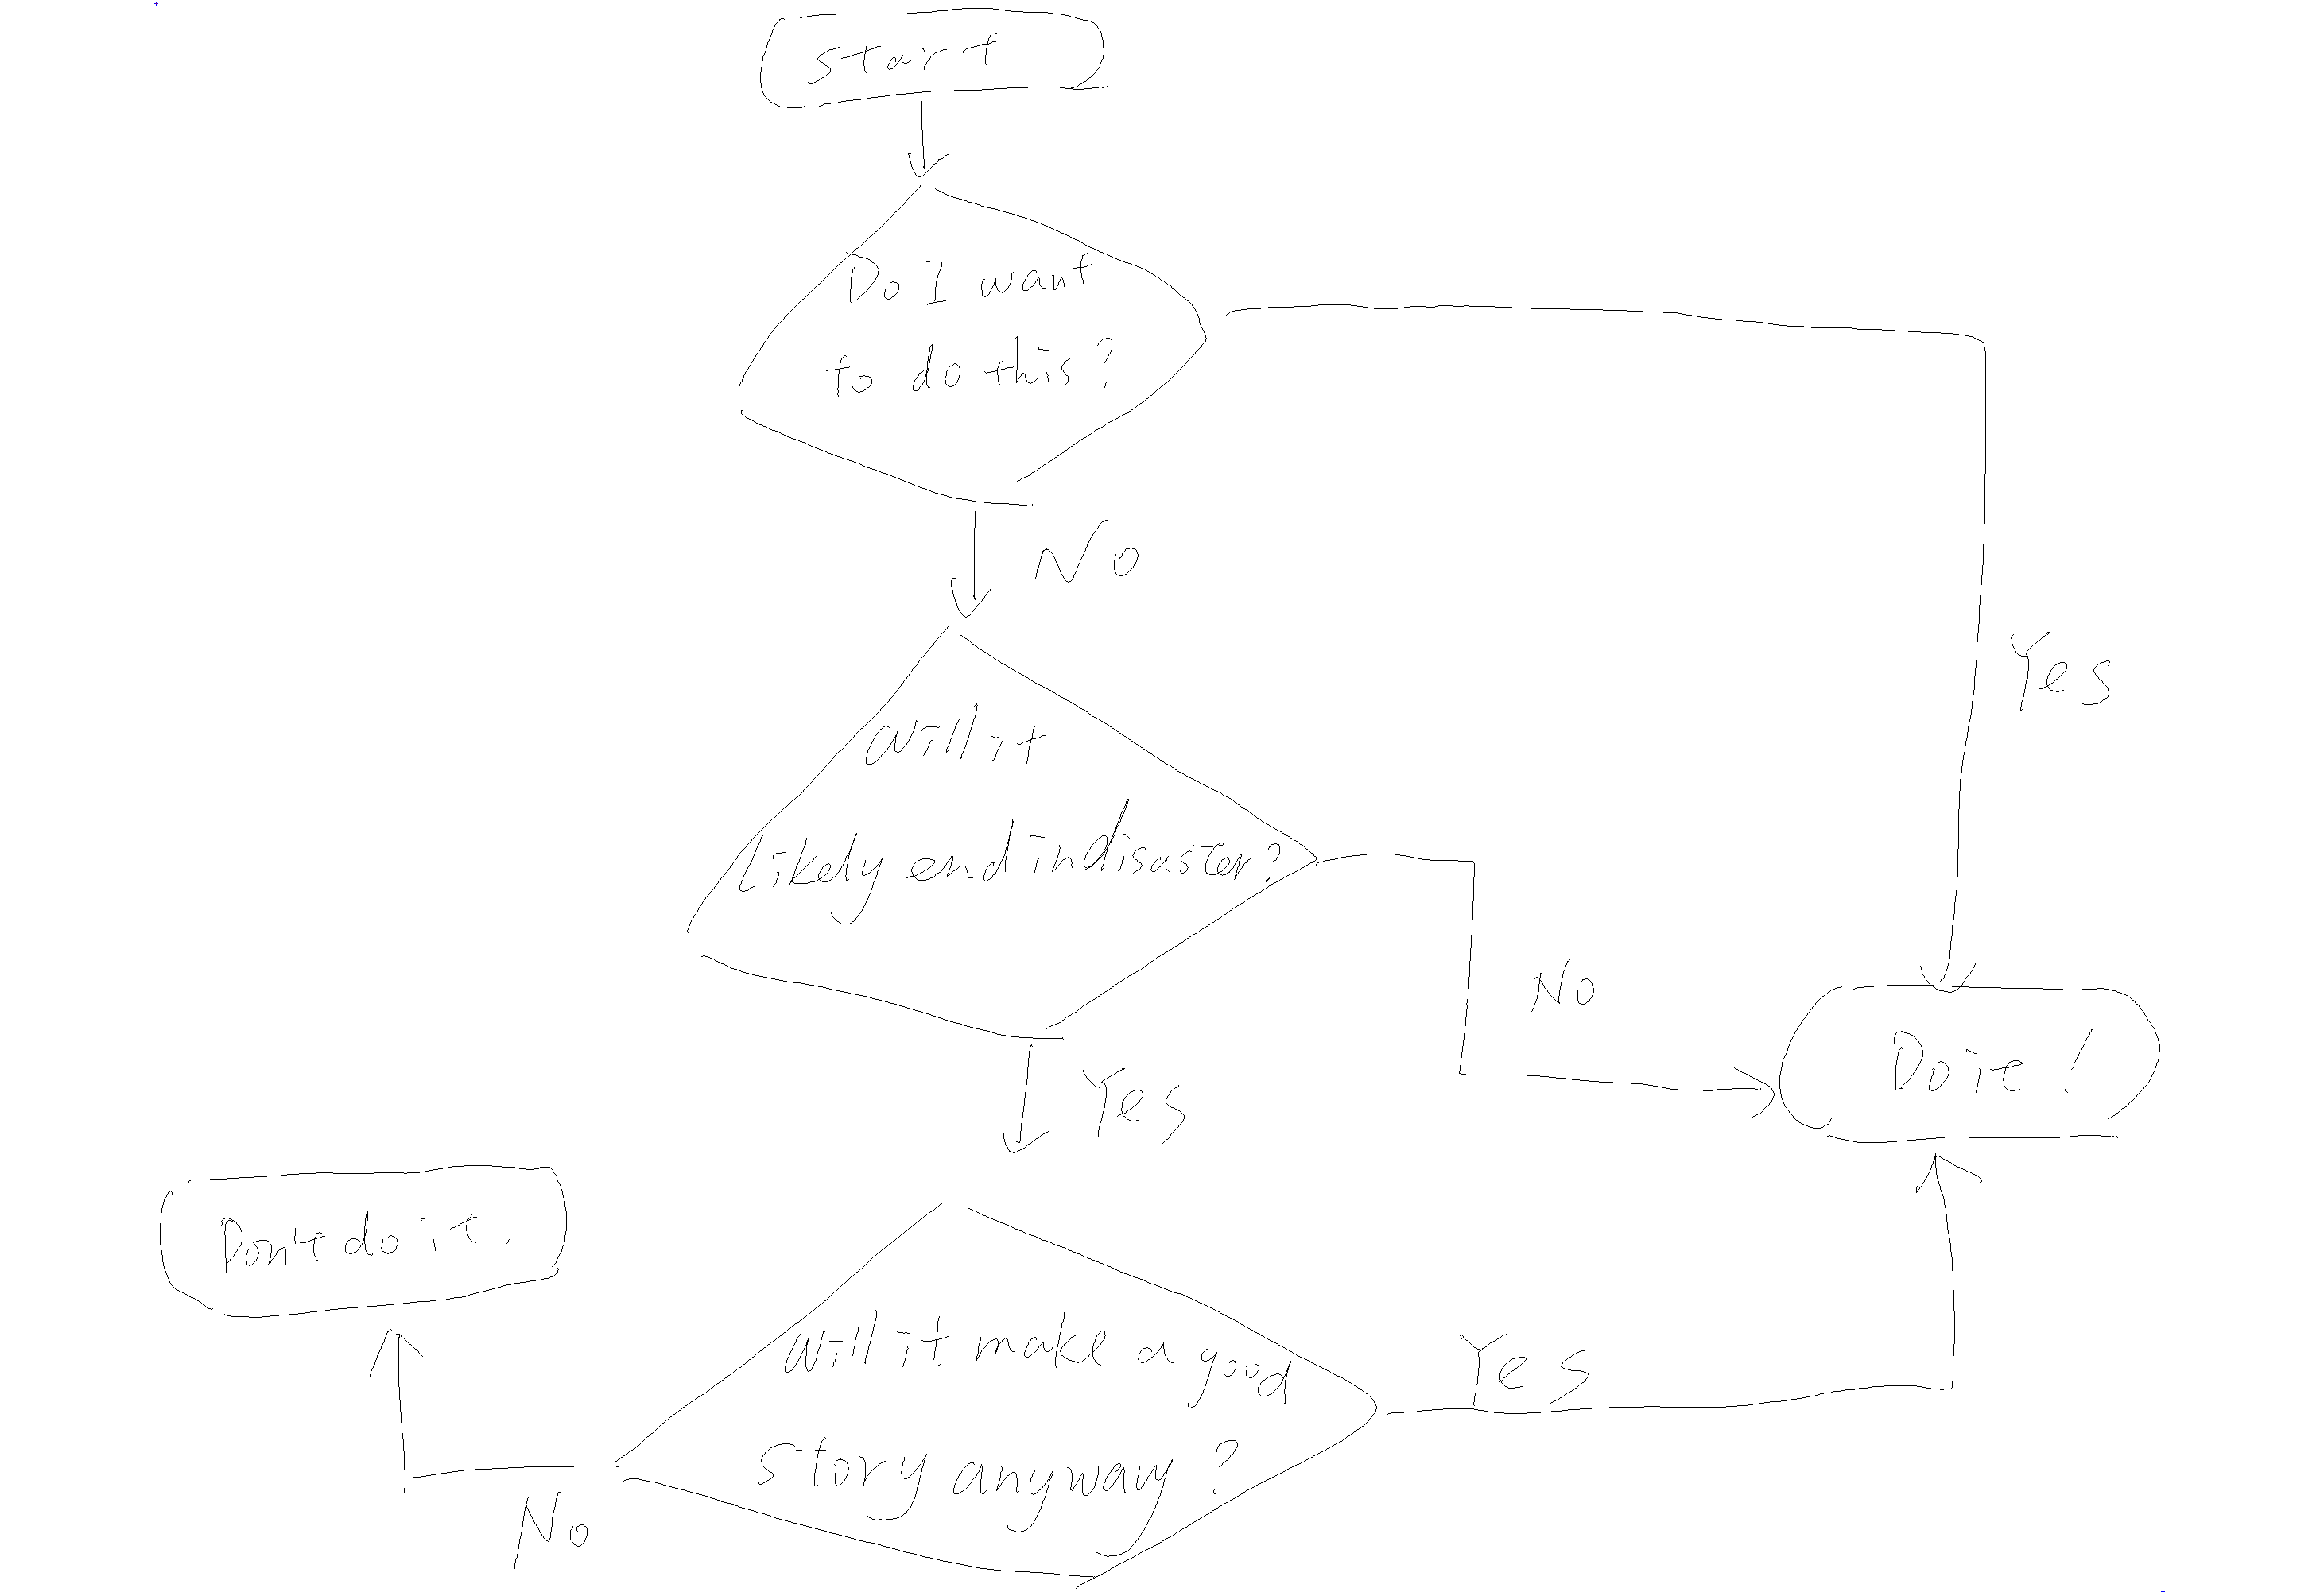 start
Do I want
to do this?
No
Yes
will it
likely end in disaster?
No
Yes
Do it!
Don't do it.
Will it make a good
story anyway?
Yes
No